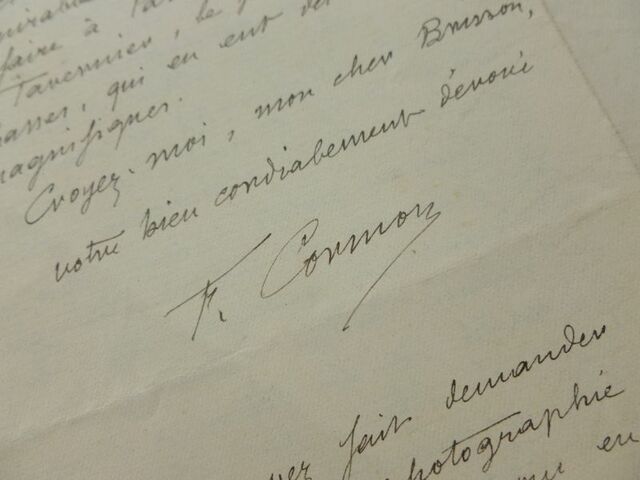 faire à
Tavernier, le
qui en ont
magnifiques.
Croyez-moi, mon cher Brisson,
votre bien cordialement dévoué
F. Cormon
fait demander
photographie
en